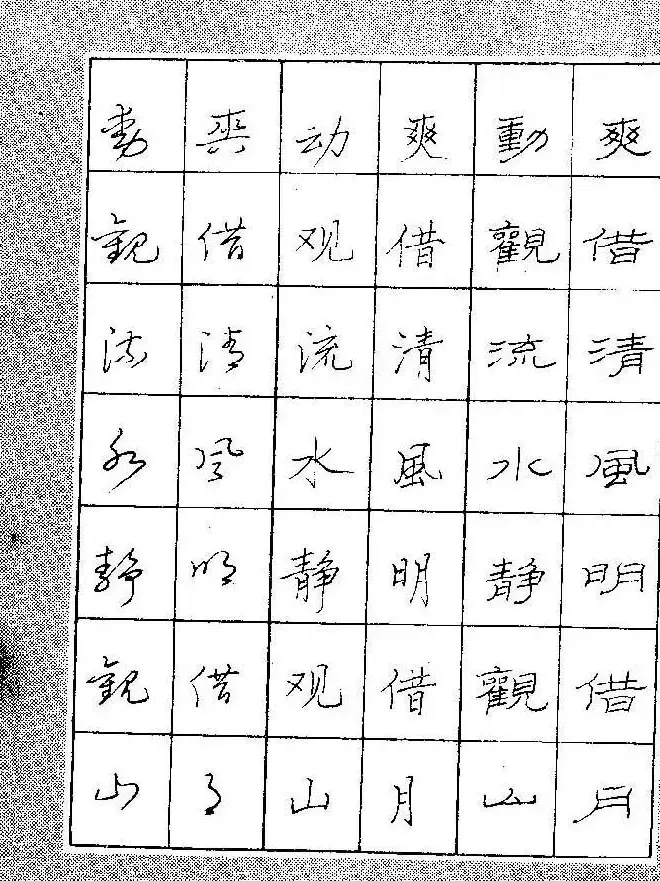 爽借清風明借月
動觀流水静觀山
爽借清風明借月
动观流水静观山
爽借清风明借月
動觀流水静觀山